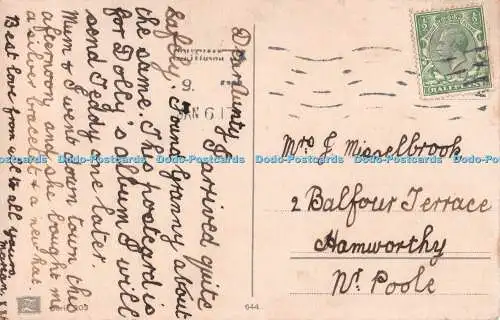 Dear Aunty I arrived quite
safely. Found Granny about
the same. This postcard is
for Dolly's album I will
send Teddy one later.
Mum & I went down town this
afternoon, and she bought me
a silver bracelet & a new hat.
Best love from all to all yours
Marian
9.
JAN 6 17
HALFPENNY
Mrs J Misselbrook
2 Balfour Terrace
Hamworthy
Nr. Poole
644
Dodo-Postcards Dodo-Postcards Dodo-Postcards Dodo-Postcards Dodo-Postcards Dodo-Postcards